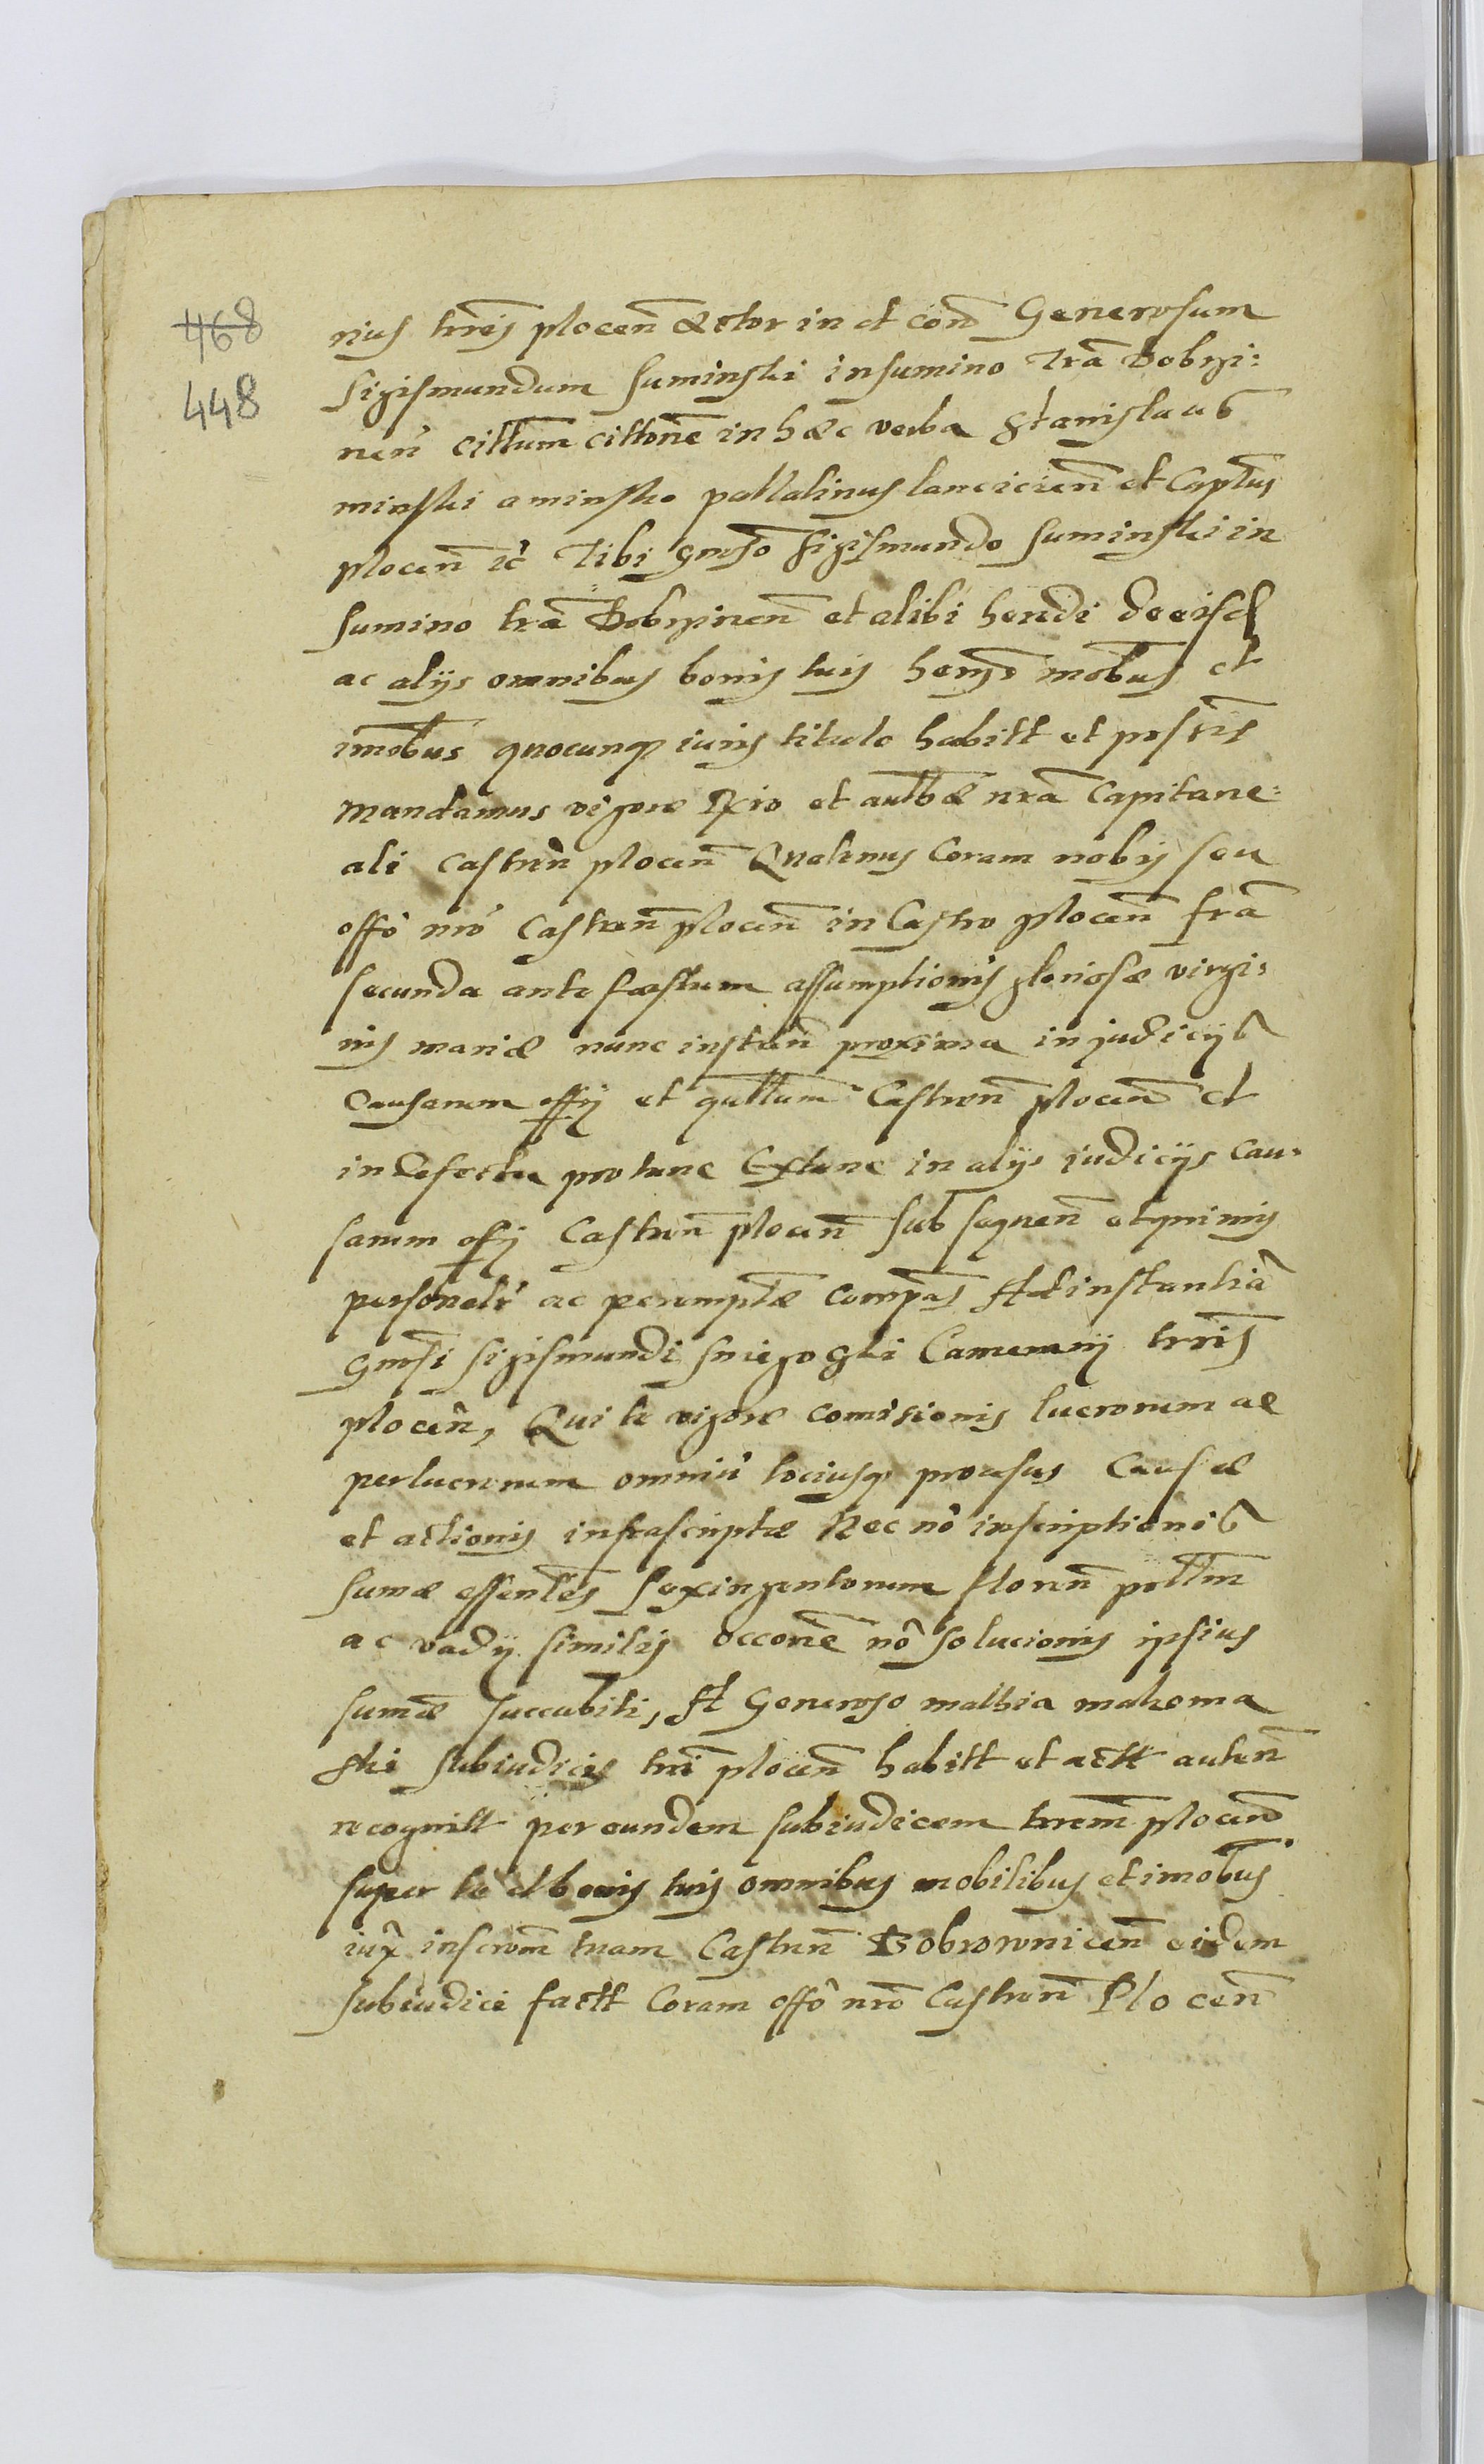 468
448
rius trris plocen̄ Actor in et con̄ Generosum
Sigismundum Suminski in sumino Tra Dobrzi:
nen̄ cittum cittone in hæc verba Stanislaus
minski a minsko pallatinus lancicien̄ et Captus
plocen̄ ic̄ Tibi gnoso Sigismundo Suminski in
Sumino tra Dobrzinen̄ et alibi hendi de eisd
ac alijs omnibus bonis tuis mobus et
imobus quocunq iuris titulo habitt et posstis
Mandamus vigore et autbæ nra Capitane:
ali Castren̄ plocen̄ Quatenus Coram nobis seu
offo nro Castren̄ plocen̄ in Castro plocen̄ fra
secunda ante fæstum assumptionis gloriosæ virgi:
nis mariæ nunc instan̄ proxima in judicijs
Causarum offij et quttum Castren̄ plocen̄ et
in defectu pro tunc Extunc in alijs iudicijs Cau:
sarum offij Castren̄ plocen̄ sub sequen̄ et primis
personalr ac peremptæ Compas Ad instantia
gnosi Sigismundi Camerarij trris
plocen̄, Qui te vigore comisionis lucrorum ac
perlucrorum omniu tociusq processus Causæ
et actionis infrascriptæ Nec no inscriptionis
sumæ essentles Sexingentorum floren̄ polltm
ac vadij similis occone no solucionis ipsius
sumæ succubiti, A Generoso mathia makoma
ski subiudicis trri plocen̄ habitt et actt auten̄
recognitt per eundem subiudicem trrem plocen̄
super te et bonis tuis omnibus mobilibus et imobus
iux inscrom tuam Castren̄ Bobrownicen̄ eidem
subiudici factt Coram offo nro Castren̄ Plocen̄